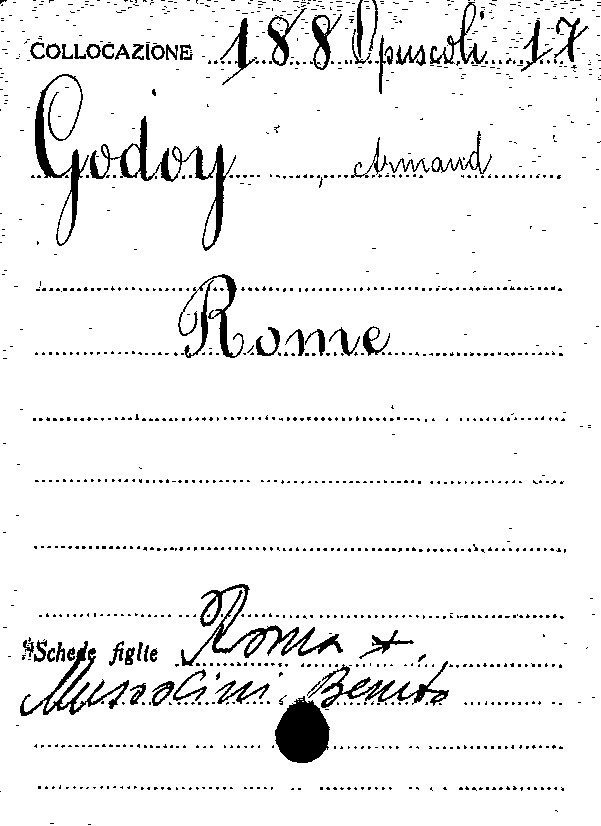 COLLOCAZIONE 188 Opuscoli 17
Godoy, Armand
Rome
Schede figlie Roma *.
Mussolini, Benito